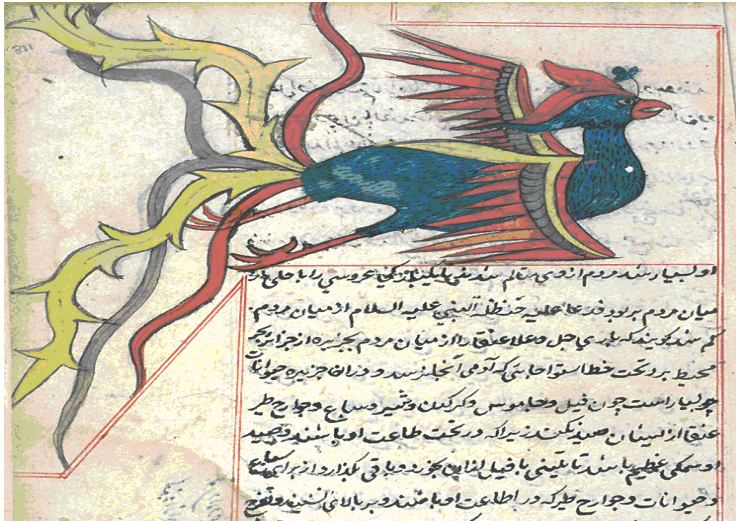 او بسیار شد مردم از وی متالم شدند تی بلیلة با زیحا عروسی را با حلی از
میان مردم بربود فدعا علیه حنظلة النبی علیه السلام از میان مردم
کم شد کویند که باری جل و علا عنقا را از میان مردم بجزیره از جزایر بحر
محیط برد تحت خط استوا جایی که آدمی آنجا نرسد و در ان جزیره حیوانات
چو بسیار است چون فیل و جاموس و کرکدن و شیر و سباع و جوارح طیر
عنقا از ایشان صید نکند زیرا که در تحت طاعت او باشند و صید
او سمکی عظیم باشد تا تنینی یا فیل ازان بخورد و باقی بکذارد از برای سباع
و حیوانات و جوارح طیر که در اطاعت او باشند و بر بالای نشیند و تفرج